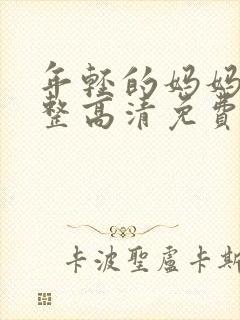 年轻的妈妈
整高清免費
卡波聖盧卡斯